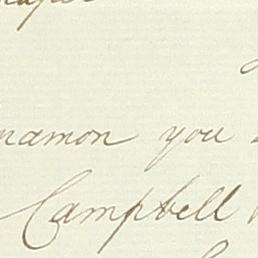 namon you
Campbell